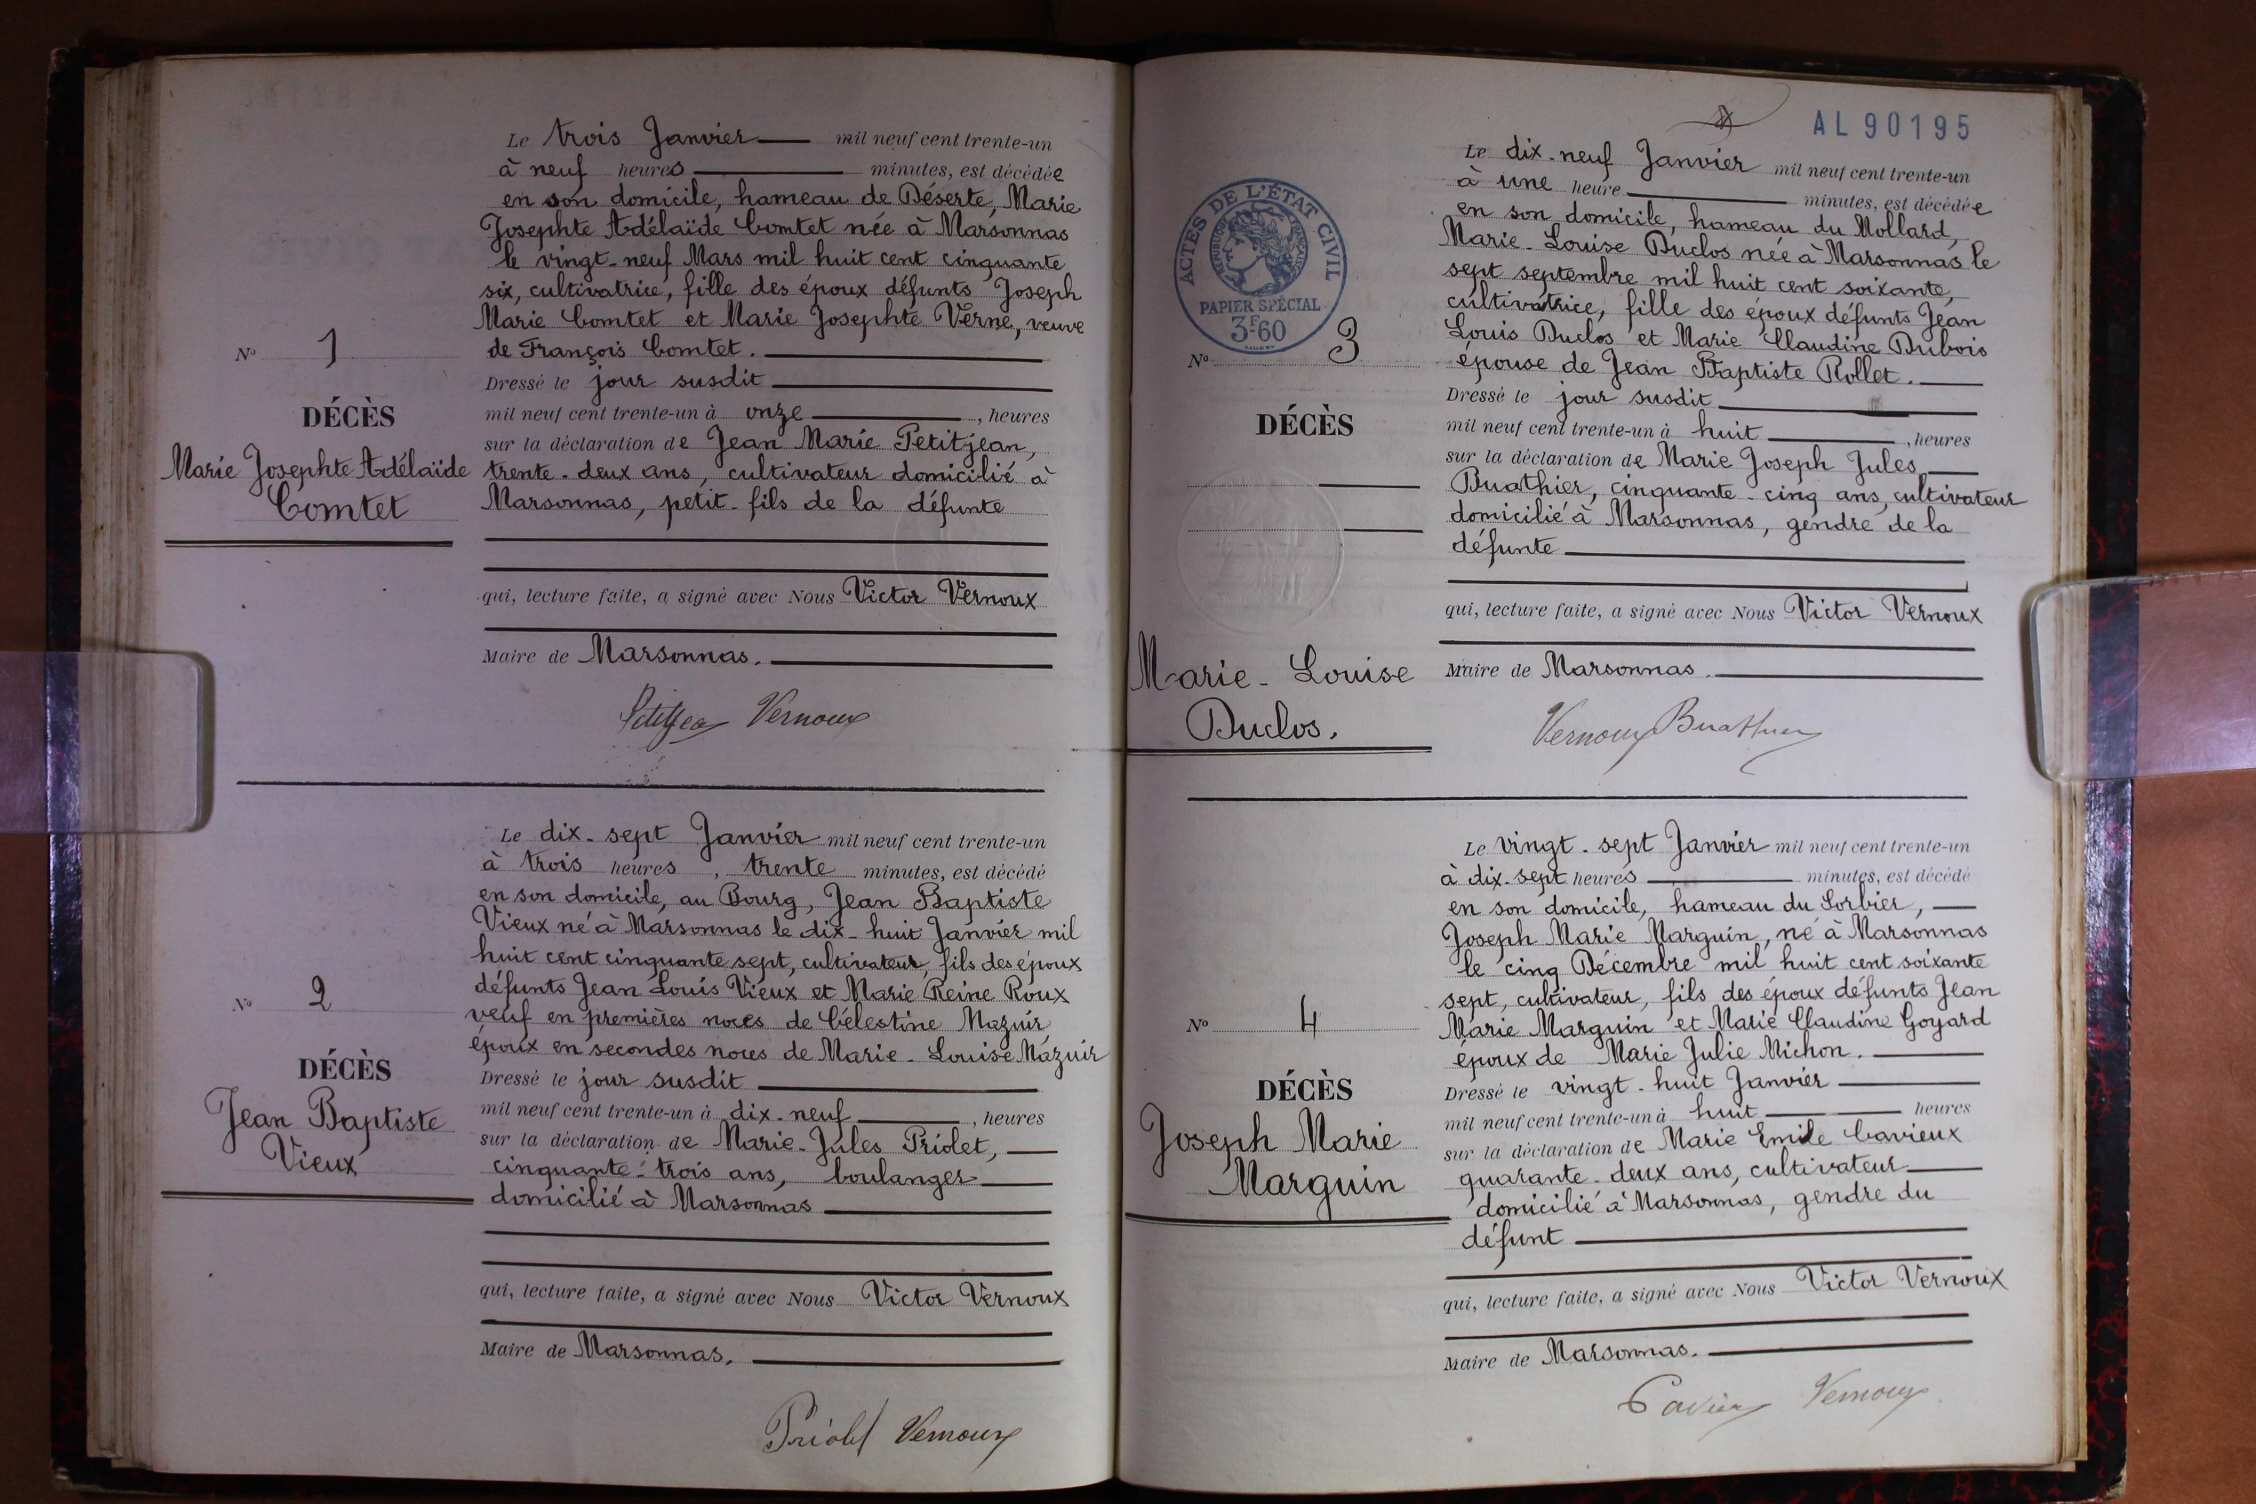 Le trois Janvier mil neuf cent trente-un
à neuf heures minutes, est décédée
en son domicile, hameau de Déserte, Marie
Josephte Adélaïde Comtet née à Marsonnas
le vingt-neuf Mars mil huit cent cinquante
six, cultivatrice, fille des époux défunts Joseph
Marie Comtet et Marie Josephte Verne, veuve
de François Comtet.
N° 1
DÉCÈS
Marie Josephte Adélaïde
Comtet
Dressé le jour susdit
mil neuf cent trente-un à onze, heures
sur la déclaration de Jean Marie Petitjean,
trente-deux ans, cultivateur domicilié à
Marsonnas, petit-fils de la défunte
qui, lecture faite, a signé avec Nous Victor Vernoux
Maire de Marsonnas.
Vernoux
Le dix-sept Janvier mil neuf cent trente-un
à trois heures, trente minutes, est décédé
en son domicile, au Bourg, Jean Baptiste
Vieux né à Marsonnas le dix-huit Janvier mil
huit cent cinquante sept, cultivateur, fils des époux
défunts Jean Louis Vieux et Marie Reine Roux
veuf en premières noces de Célestine Mazuir
époux en secondes noces de Marie-Louise Mazuir
N° 2
DÉCÈS
Jean Baptiste
Vieux
Dressé le jour susdit
mil neuf cent trente-un à dix-neuf, heures
sur la déclaration de Marie-Jules Priolet,
cinquante-trois ans, boulanger
domicilié à Marsonnas
qui, lecture faite, a signé avec Nous Victor Vernoux
Maire de Marsonnas.
Priolet Vernoux
AL 90195
ACTES DE L'ÉTAT CIVIL
RÉPUBLIQUE FRANÇAISE
PAPIER SPÉCIAL
3F.60
Le dix-neuf Janvier mil neuf cent trente-un
à une heure minutes, est décédée
en son domicile, hameau du Mollard,
Marie-Louise Duclos née à Marsonnas le
sept septembre mil huit cent soixante,
cultivatrice, fille des époux défunts Jean
Louis Duclos et Marie Claudine Dubois
épouse de Jean Baptiste Rollet.
N° 3
DÉCÈS
Marie-Louise
Duclos.
Dressé le jour susdit
mil neuf cent trente-un à huit, heures
sur la déclaration de Marie Joseph Jules
Buathier, cinquante-cinq ans, cultivateur
domicilié à Marsonnas, gendre de la
défunte
qui, lecture faite, a signé avec Nous Victor Vernoux
Maire de Marsonnas.
Vernoux Buathier
Le vingt-sept Janvier mil neuf cent trente-un
à dix-sept heures minutes, est décédé
en son domicile, hameau du Sorbier,
Joseph Marie Marguin, né à Marsonnas
le cinq Décembre mil huit cent soixante
sept, cultivateur, fils des époux défunts Jean
Marie Marguin et Marie Claudine Goyard
époux de Marie Julie Michon.
N° 4
DÉCÈS
Joseph Marie
Marguin
Dressé le vingt-huit Janvier
mil neuf cent trente-un à huit heures
sur la déclaration de Marie Emile Cavieux
quarante-deux ans, cultivateur
domicilié à Marsonnas, gendre du
défunt
qui, lecture faite, a signé avec Nous Victor Vernoux
Maire de Marsonnas.
Vernoux